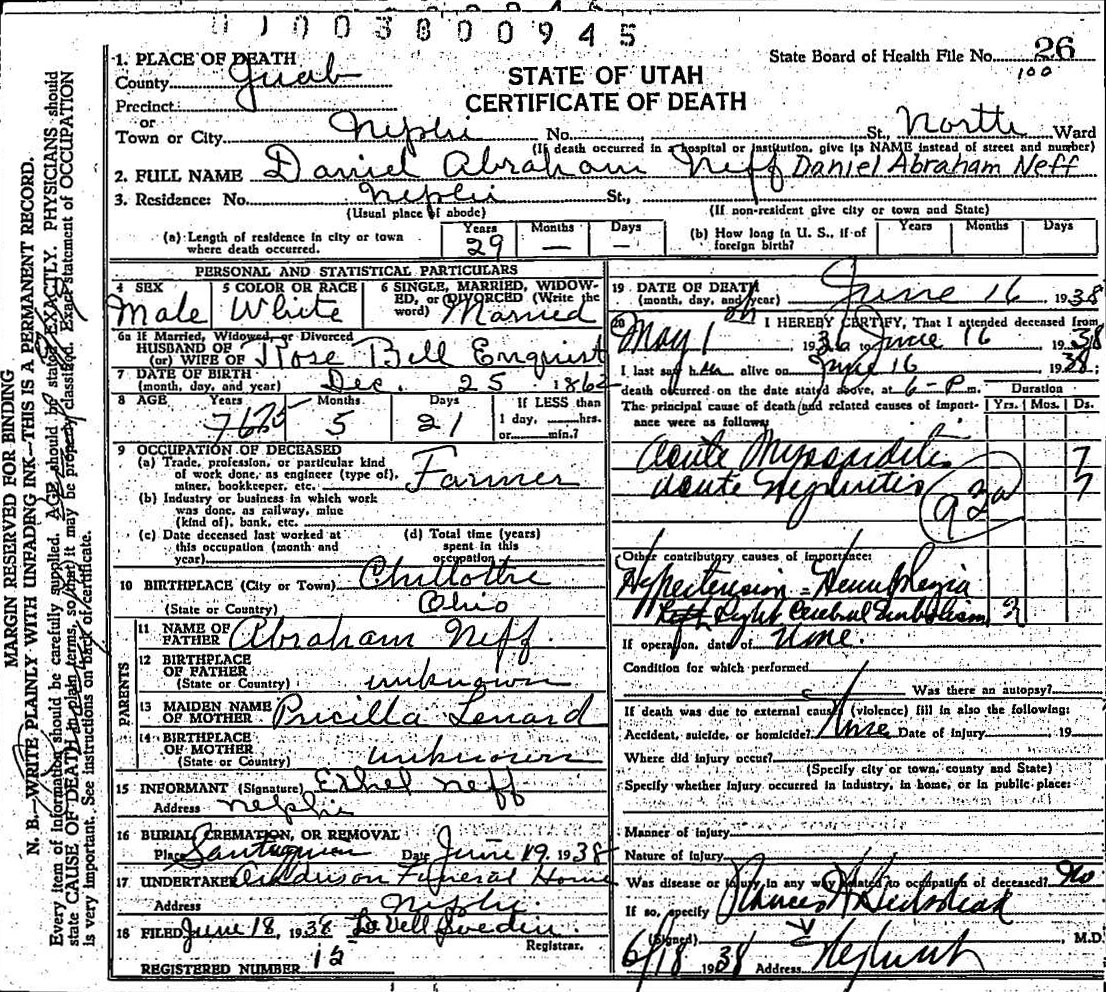 0 1 0 0 3 8 0 0 9 4 5
State Board of Health File No. 26
100
STATE OF UTAH
CERTIFICATE OF DEATH
1. PLACE OF DEATH
County Juab
Precinct
or
Town or City Nephi No. St., North Ward
(If death occurred in a hospital or institution, give its NAME instead of street and number)
2. FULL NAME Daniel Abraham Neff Daniel Abraham Neff
3. Residence: No. Nephi St.,
(Usual place of abode) (If non-resident give city or town and State)
(a) Length of residence in city or town where death occurred. Years 29 Months — Days —
(b) How long in U. S., if of foreign birth? Years Months Days
PERSONAL AND STATISTICAL PARTICULARS
4 SEX Male
5 COLOR OR RACE White
6 SINGLE, MARRIED, WIDOWED, or DIVORCED (Write the word) Married
6a If Married, Widowed, or Divorced
HUSBAND OF
(or) WIFE OF Rose Bell Enquist
7 DATE OF BIRTH
(month, day, and year) Dec. 25 1862
8 AGE Years 75 Months 5 Days 21 If LESS than 1 day, hrs. or min.?
9 OCCUPATION OF DECEASED
(a) Trade, profession, or particular kind of work done, as engineer (type of), miner, bookkeeper, etc. Farmer
(b) Industry or business in which work was done, as railway, mine (kind of), bank, etc.
(c) Date deceased last worked at this occupation (month and year)
(d) Total time (years) spent in this occupation
10 BIRTHPLACE (City or Town) Chillothe
(State or Country) Ohio
PARENTS
11 NAME OF FATHER Abraham Neff.
12 BIRTHPLACE OF FATHER
(State or Country) unknown
13 MAIDEN NAME OF MOTHER Pricilla Lenard
14 BIRTHPLACE OF MOTHER
(State or Country) unknown
15 INFORMANT (Signature) Ethel Neff
Address Nephi
16 BURIAL, CREMATION, OR REMOVAL
Place Santaquin Date June 19, 1938
17 UNDERTAKER Anderson Funeral Home
Address Nephi.
18 FILED June 18, 1938 LaVell Sweden.
Registrar.
REGISTERED NUMBER 15
19 DATE OF DEATH
(month, day, and year) June 16 1938
20 I HEREBY CERTIFY, That I attended deceased from
May 1 193 to June 16 1938
I last saw h alive on June 16 1938;
death occurred on the date stated above, at 6 P m.
The principal cause of death and related causes of importance were as follows: Duration Yrs. Mos. Ds.
Acute 7
Acute Nephritis 7
93a
Other contributory causes of importance:
Hypertension - Hemiplegia
Right Cerebral Embolism
If operation, date of None.
Condition for which performed
Was there an autopsy?
If death was due to external cause (violence) fill in also the following:
Accident, suicide, or homicide? None Date of injury 19
Where did injury occur?
(Specify city or town, county and State)
Specify whether injury occurred in industry, in home, or in public place:
Manner of injury
Nature of injury
Was disease or injury in any way related to occupation of deceased? No
If so, specify
(Signed) , M.D.
6/18 1938 Address
MARGIN RESERVED FOR BINDING
N. B.—WRITE PLAINLY WITH UNFADING INK—THIS IS A PERMANENT RECORD.
Every item of information should be carefully supplied. AGE should be stated EXACTLY. PHYSICIANS should
state CAUSE OF DEATH in plain terms, so that it may be properly classified. Exact statement of OCCUPATION
is very important. See instructions on back of certificate.